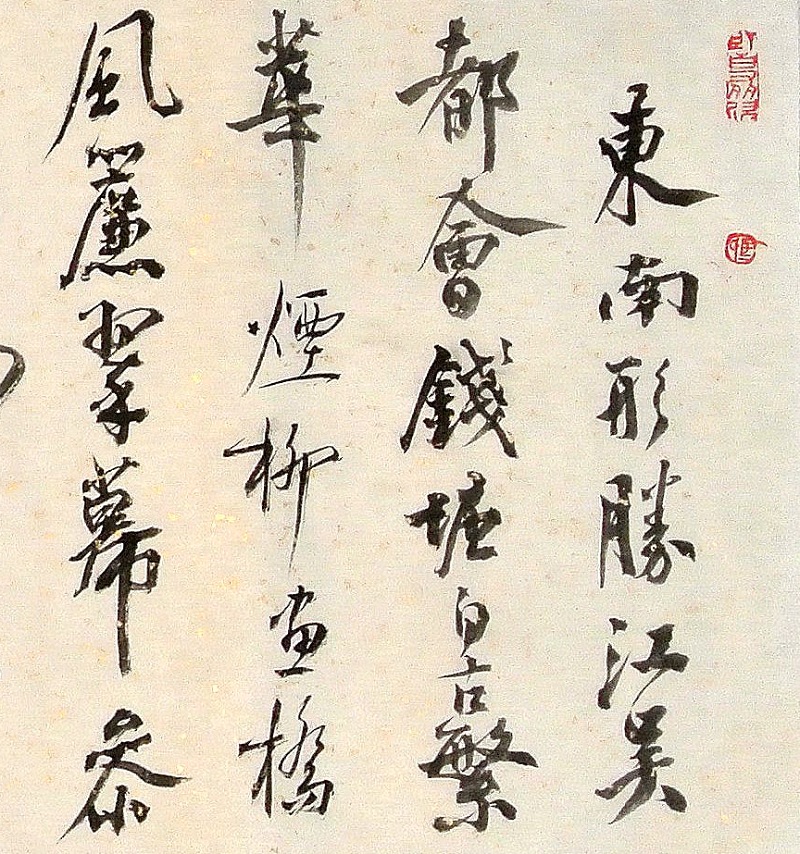 東南形勝江吳
都會錢塘自古繁
華煙柳畫橋
風簾翠幕參